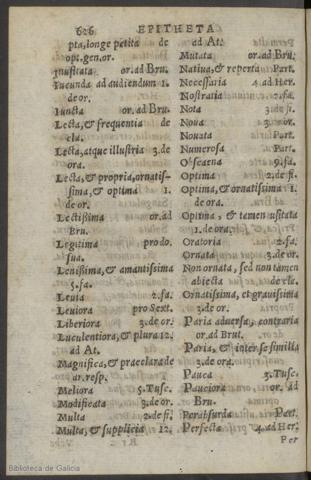 626 EPITHETA
pta, longe petita de
opt. gen. or.
Inusitata or. ad Bru.
Iucunda ad audiendum 1.
de or.
Iuncta or. ad Bru.
Lecta, & frequentia de
cla.
Lecta, atque illustria 3. de
ora.
Lecta, & propria, ornatis-
sima, & optima 1.
de or.
Lectissima or. ad
Bru.
Legitima pro do.
sua.
Lenissima, & amantissima
5. fa.
Leuia 2. fa.
Leuiora pro Sext.
Liberiora 3. de or.
Luculentiora, & plura 12.
ad At.
Magnifica, & praeclara de
ar. resp.
Meliora 5. Tusc.
Modificata 3. de or.
Multa 2. de fi.
Multa, & supplicia 12.
ad At.
Mutata or. ad Bru.
Natiua, & reperta Part.
Necessaria 4. ad Her.
Nostratia 2. fa.
Nota 3. de fi.
Noua 3. or.
Nouata Part.
Numerosa Part.
Obscaena 9. fa.
Optima 2. de fi.
Optima, & ornatissima 1.
de ora.
Optima, & tamen usitata
1. de ora.
Oratoria 2. fa.
Ornata 3. de or.
Non ornata, sed non tamen
abiecta de cle.
Ornatissima, et grauissima
3. de or.
Paria aduersa, contraria
or. ad Brut.
Paria, & inter se similia
3. de ora.
Pauca 3. Tusc.
Pauciora or. ad
Bru.
Perabsurda Part.
Perfecta 4. ad Her.
Per
Biblioteca de Galicia